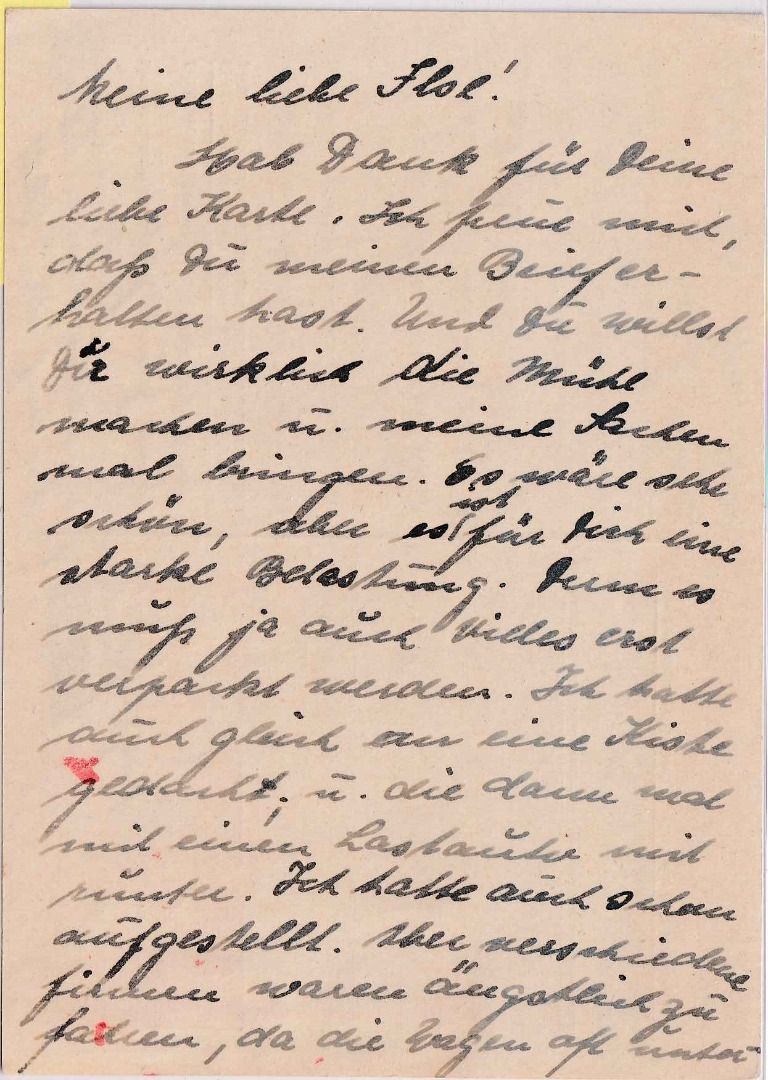 Meine liebe Ilse!
Hab Dank für Deine
liebe Karte. Ich freue mich,
daß Du meinen Brief er-
halten hast. Und Du willst
Dir wirklich die Mühe
machen u. meine Sachen
mal bringen. Es wäre sehr
schön, aber es ist für Dich eine
starke Belastung. Denn es
muß ja auch Vieles erst
verpackt werden. Ich hatte
auch gleich an eine Kiste
gedacht, u. die dann mal
mit einem Lastauto mit
runter. Ich hatte auch schon
aufgestellt. Aber verschiedene
Firmen waren ängstlich zu
fahren, da die Wagen oft unter